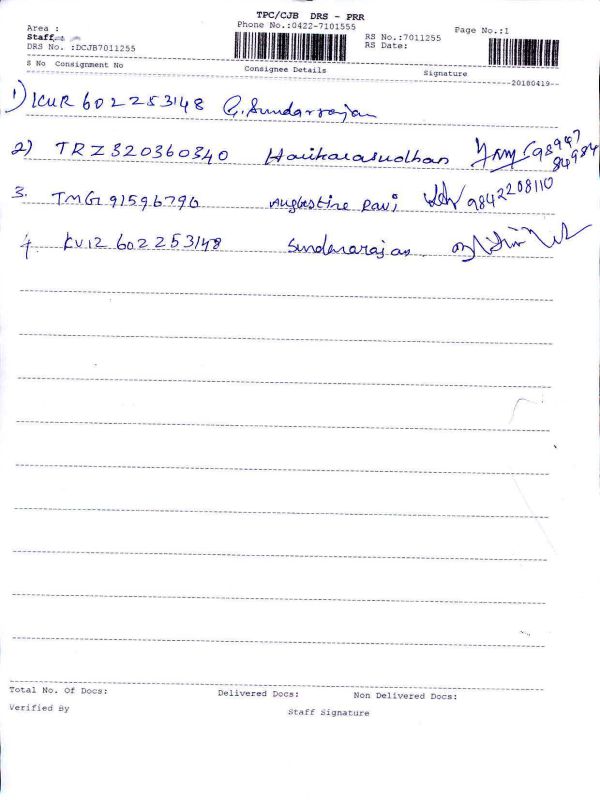 TPC/CJB DRS - PRR
Area :
Phone No.:0422-7101555
Page No.:1
Staff
RS No.:7011255
DRS No. :DCJB7011255
RS Date:
S No Consignment No Consignee Details Signature
--20180419--
1) KUR 602253148 G. Sundarrajan
2) TRZ 320360340 Hariharasudhan 98947 84984
3. TMG 91596796 Augestine Ravi 9842208110
4. KUR 602253148 Sundararajan
Total No. Of Docs: Delivered Docs: Non Delivered Docs:
Verified By Staff Signature